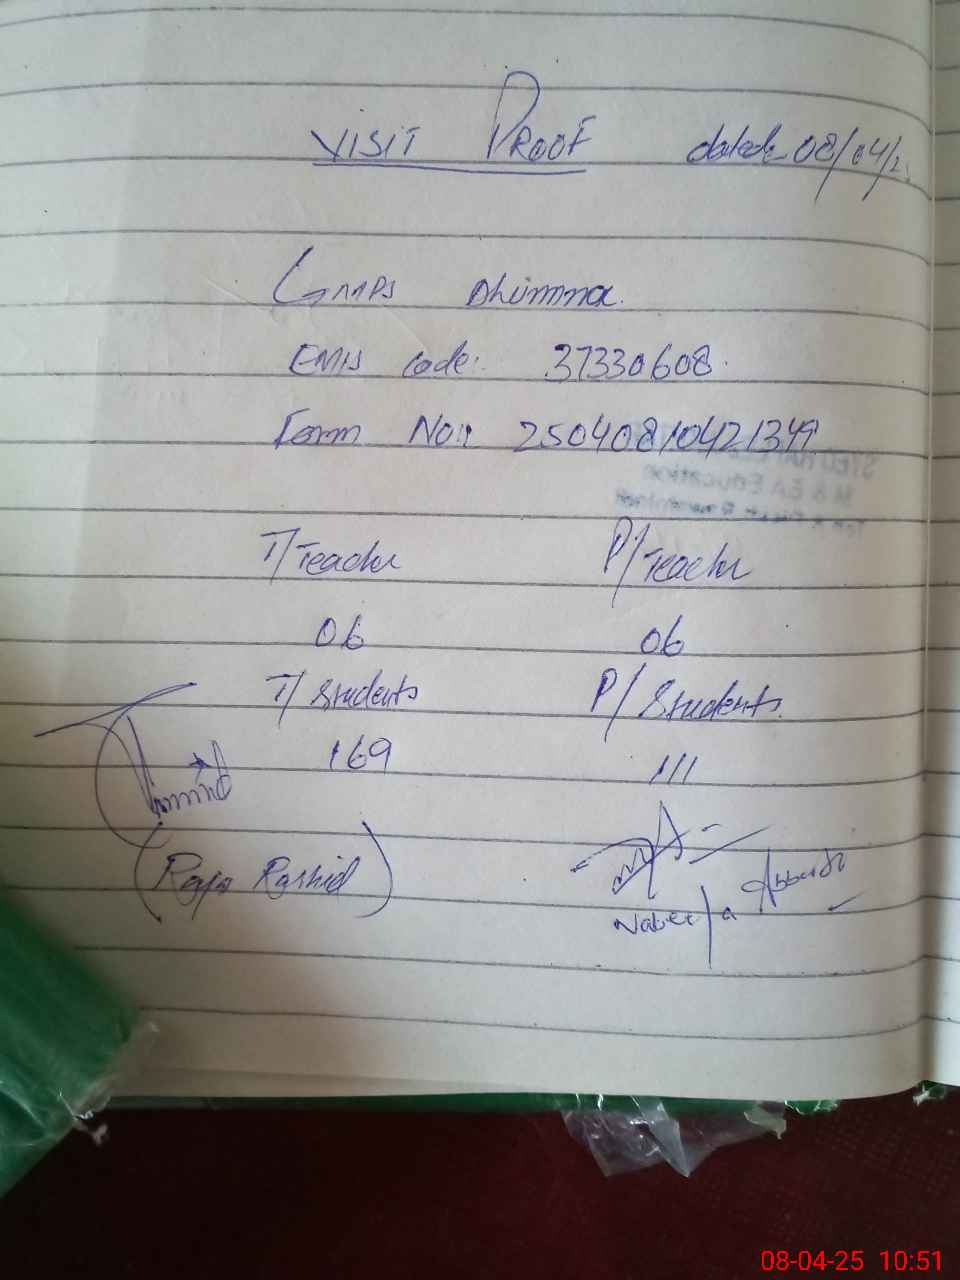 VISIT PROOF dated 08/04/2
GMPS Dhimma.
EMIS code: 37330608.
Form No:: 25040810421349
T/Teacher P/Teacher
06 06
T/Students P/Students.
169 111
(Raja Rashid)
Abbasi
08-04-25 10:51